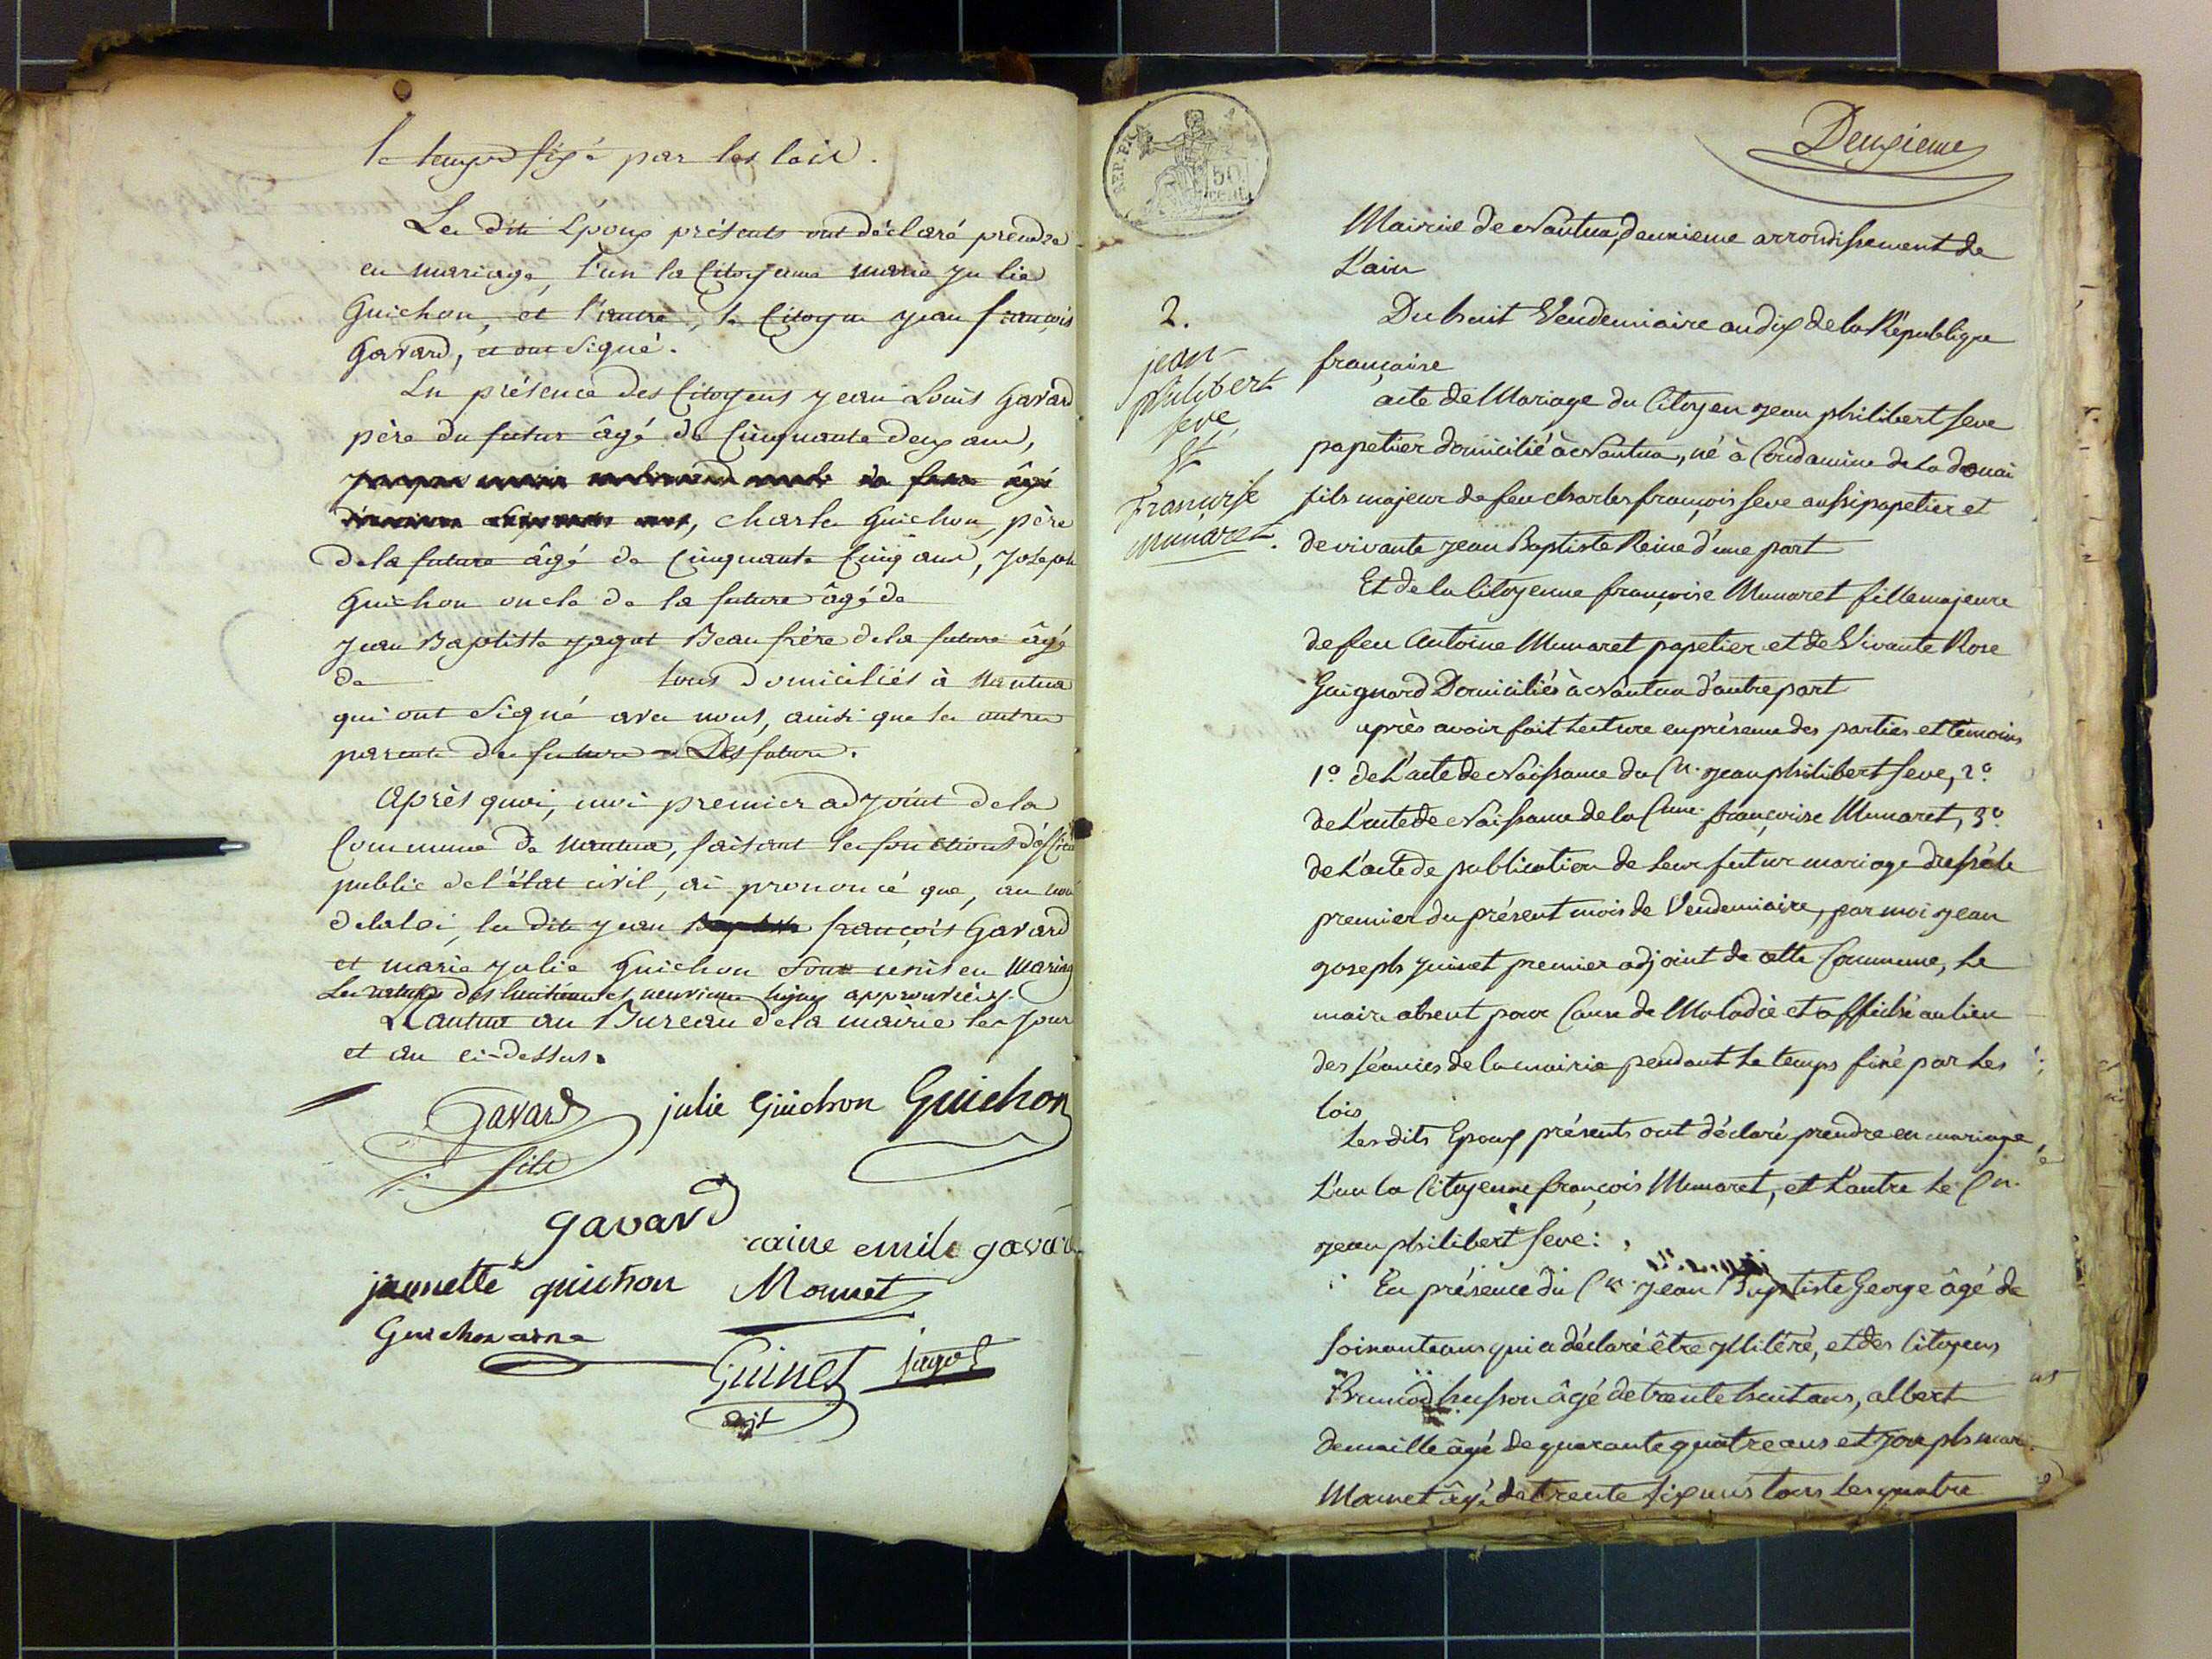 le temps fixé par les lois.
Les dits Époux présents ont déclaré prendre
en mariage, l'un la Citoyenne marie julie
Guichon, et l'autre, le Citoyen jean françois
Gavard, et ont signé.
En présence des Citoyens jean Louis Gavard
père du futur âgé de Cinquante deux ans,
charles Guichon, père
de la future âgé de Cinquante Cinq ans, joseph
Guichon oncle de la future âgé de
jean Baptiste jagot Beau frère de la future âgé
de tous domiciliés à Nantua
qui ont signé avec nous, ainsi que les autres
parents des futurs
Après quoi, moi premier adjoint de la
Commune de Nantua, faisant les fonctions d'offici
public de l'état civil, ai prononcé que, au nom
de la loi, les dits jean françois Gavard
et marie julie Guichon sont unis en Mariag
Les ratures des huitième et neuvieme lignes approuvées.
Nantua au Bureau de la mairie les jour
et an ci-dessus.
Gavard julie Guichon Guichon
fils
gavard
emile gavar
jeanette guichon Mounet
Guichon
Guinet jagot
adjt
REP. FRA.
50
cent.
Deuxieme
Mairie de Nantua, deuxieme arrondissement de
L'ain
2.
Du huit Vendemiaire an dix de la République
française
jean
philibert
seve
et
françoise
munaret.
acte de Mariage du Citoyen jean philibert seve
papetier domicilié à Nantua, né à Condamine de la douai
fils majeur de feu charles françois seve aussi papetier et
de vivante jean Baptiste Reine d'une part
Et de la Citoyenne françoise Munaret fille majeure
de feu Antoine Munaret papetier et de Vivante Rose
Guignard Domiciliés à Nantua d'autre part
après avoir fait lecture en présence des parties et témoins
1o de L'acte de Naissance du Cn. jean philibert seve, 2o
de L'acte de Naissance de la Cnne. françoise Munaret, 3o
de L'acte de publication de leur futur mariage dressé le
premier du présent mois de Vendemiaire, par moi jean
joseph juinet premier adjoint de cette Commune, le
maire absent pour Cause de Maladie et affiché au lieu
des séances de la mairie pendant le temps fixé par les
lois
Les dits Epoux présents ont déclaré prendre en mariage,
L'un la Citoyenne françois Munaret, et L'autre le Cn.
jean philibert seve:
En présence du Cn. jean Baptiste George âgé de
soixante ans qui a déclaré être yllitéré, et des Citoyens
Brunod husson âgé de trente huit ans, albert
demaille âgé de quarante quatre ans et joseph mar
Mounet âgé de trente six ans tous les quatre